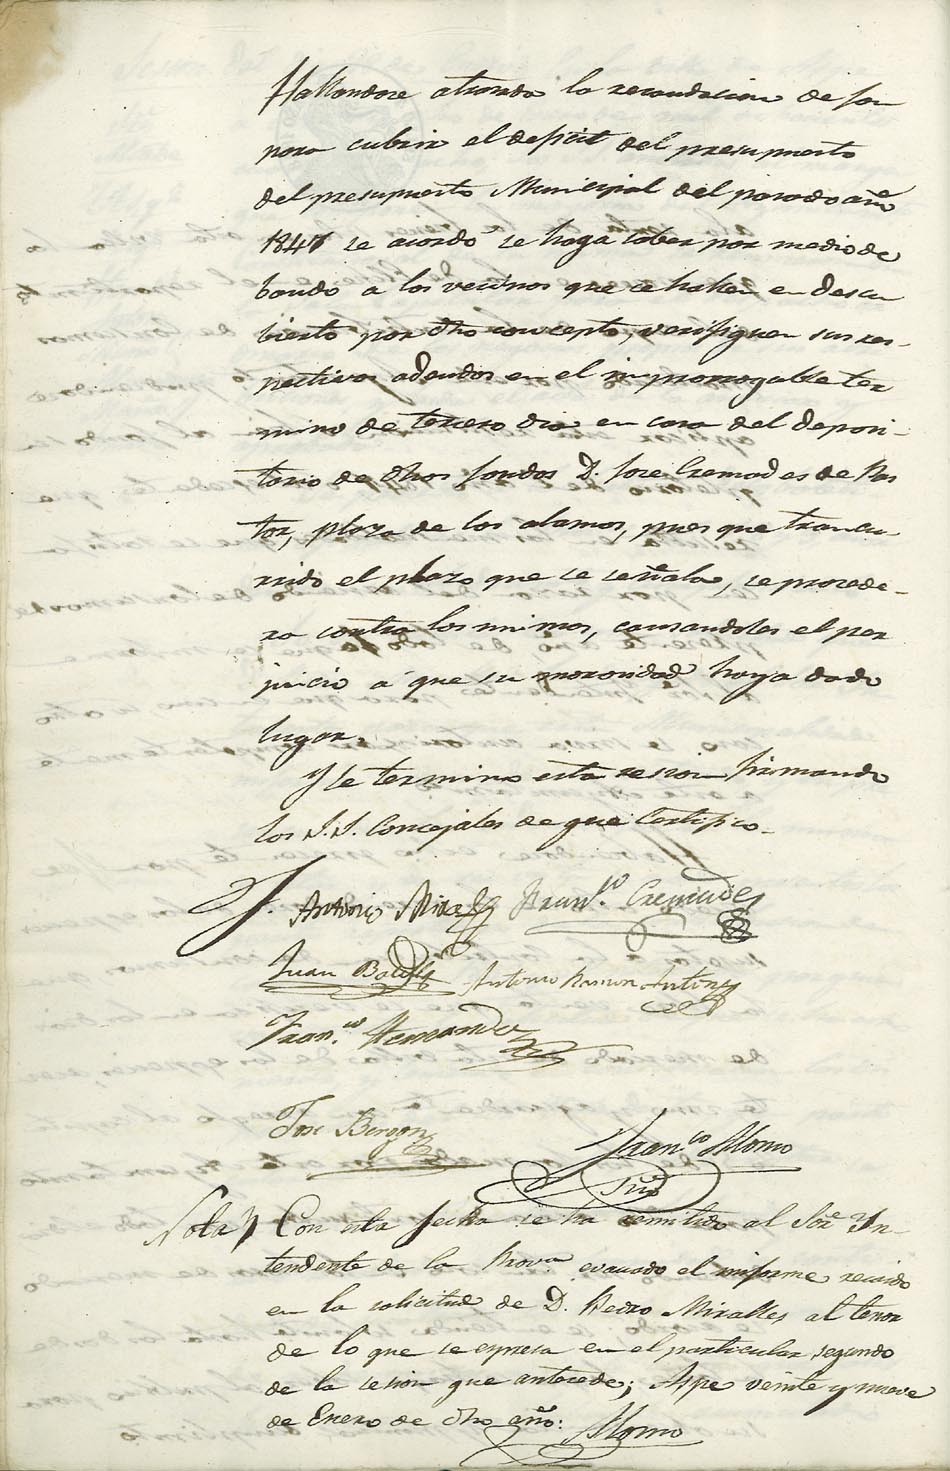 Hallandose atrasada la recaudacion de fon
para cubrir el deficit del presupuesto
del presupuesto Municipal del pasado año
1847 se acordó se haga saber por medio de
bando a los vecinos que se hallen en descu
bierto por dho concepto, verifiquen sus res-
pectivos adeudos en el improrrogable ter
mino de tercero dia en casa del deposi-
tario de dhos fondos D. Jose Cremades de Pas
tor, plaza de los alamos, pues que trancu-
rrido el plazo que se señala, se procede-
ra contra los mimos, causandoles el per
juicio á que su morosidad haya dado
lugar.
Y se termino esta sesion firmando
los S.S. Concejales de que Certifico.
Antonio Mira Fran.co Cremades
Juan Antonio Ramon Antony
Fran.co Hernandez
Jose
Fran.co Alonso
Srio
Nota Con esta fecha se ha remitido al Sor. Yn-
tendente de la Prova evacuado el informe recaido
en la solicitud de D. Pedro Miralles al tenor
de lo que se espresa en el particular segundo
de la sesion que antecede; Aspe veinte y nueve
de Enero de dho año:
Alonso